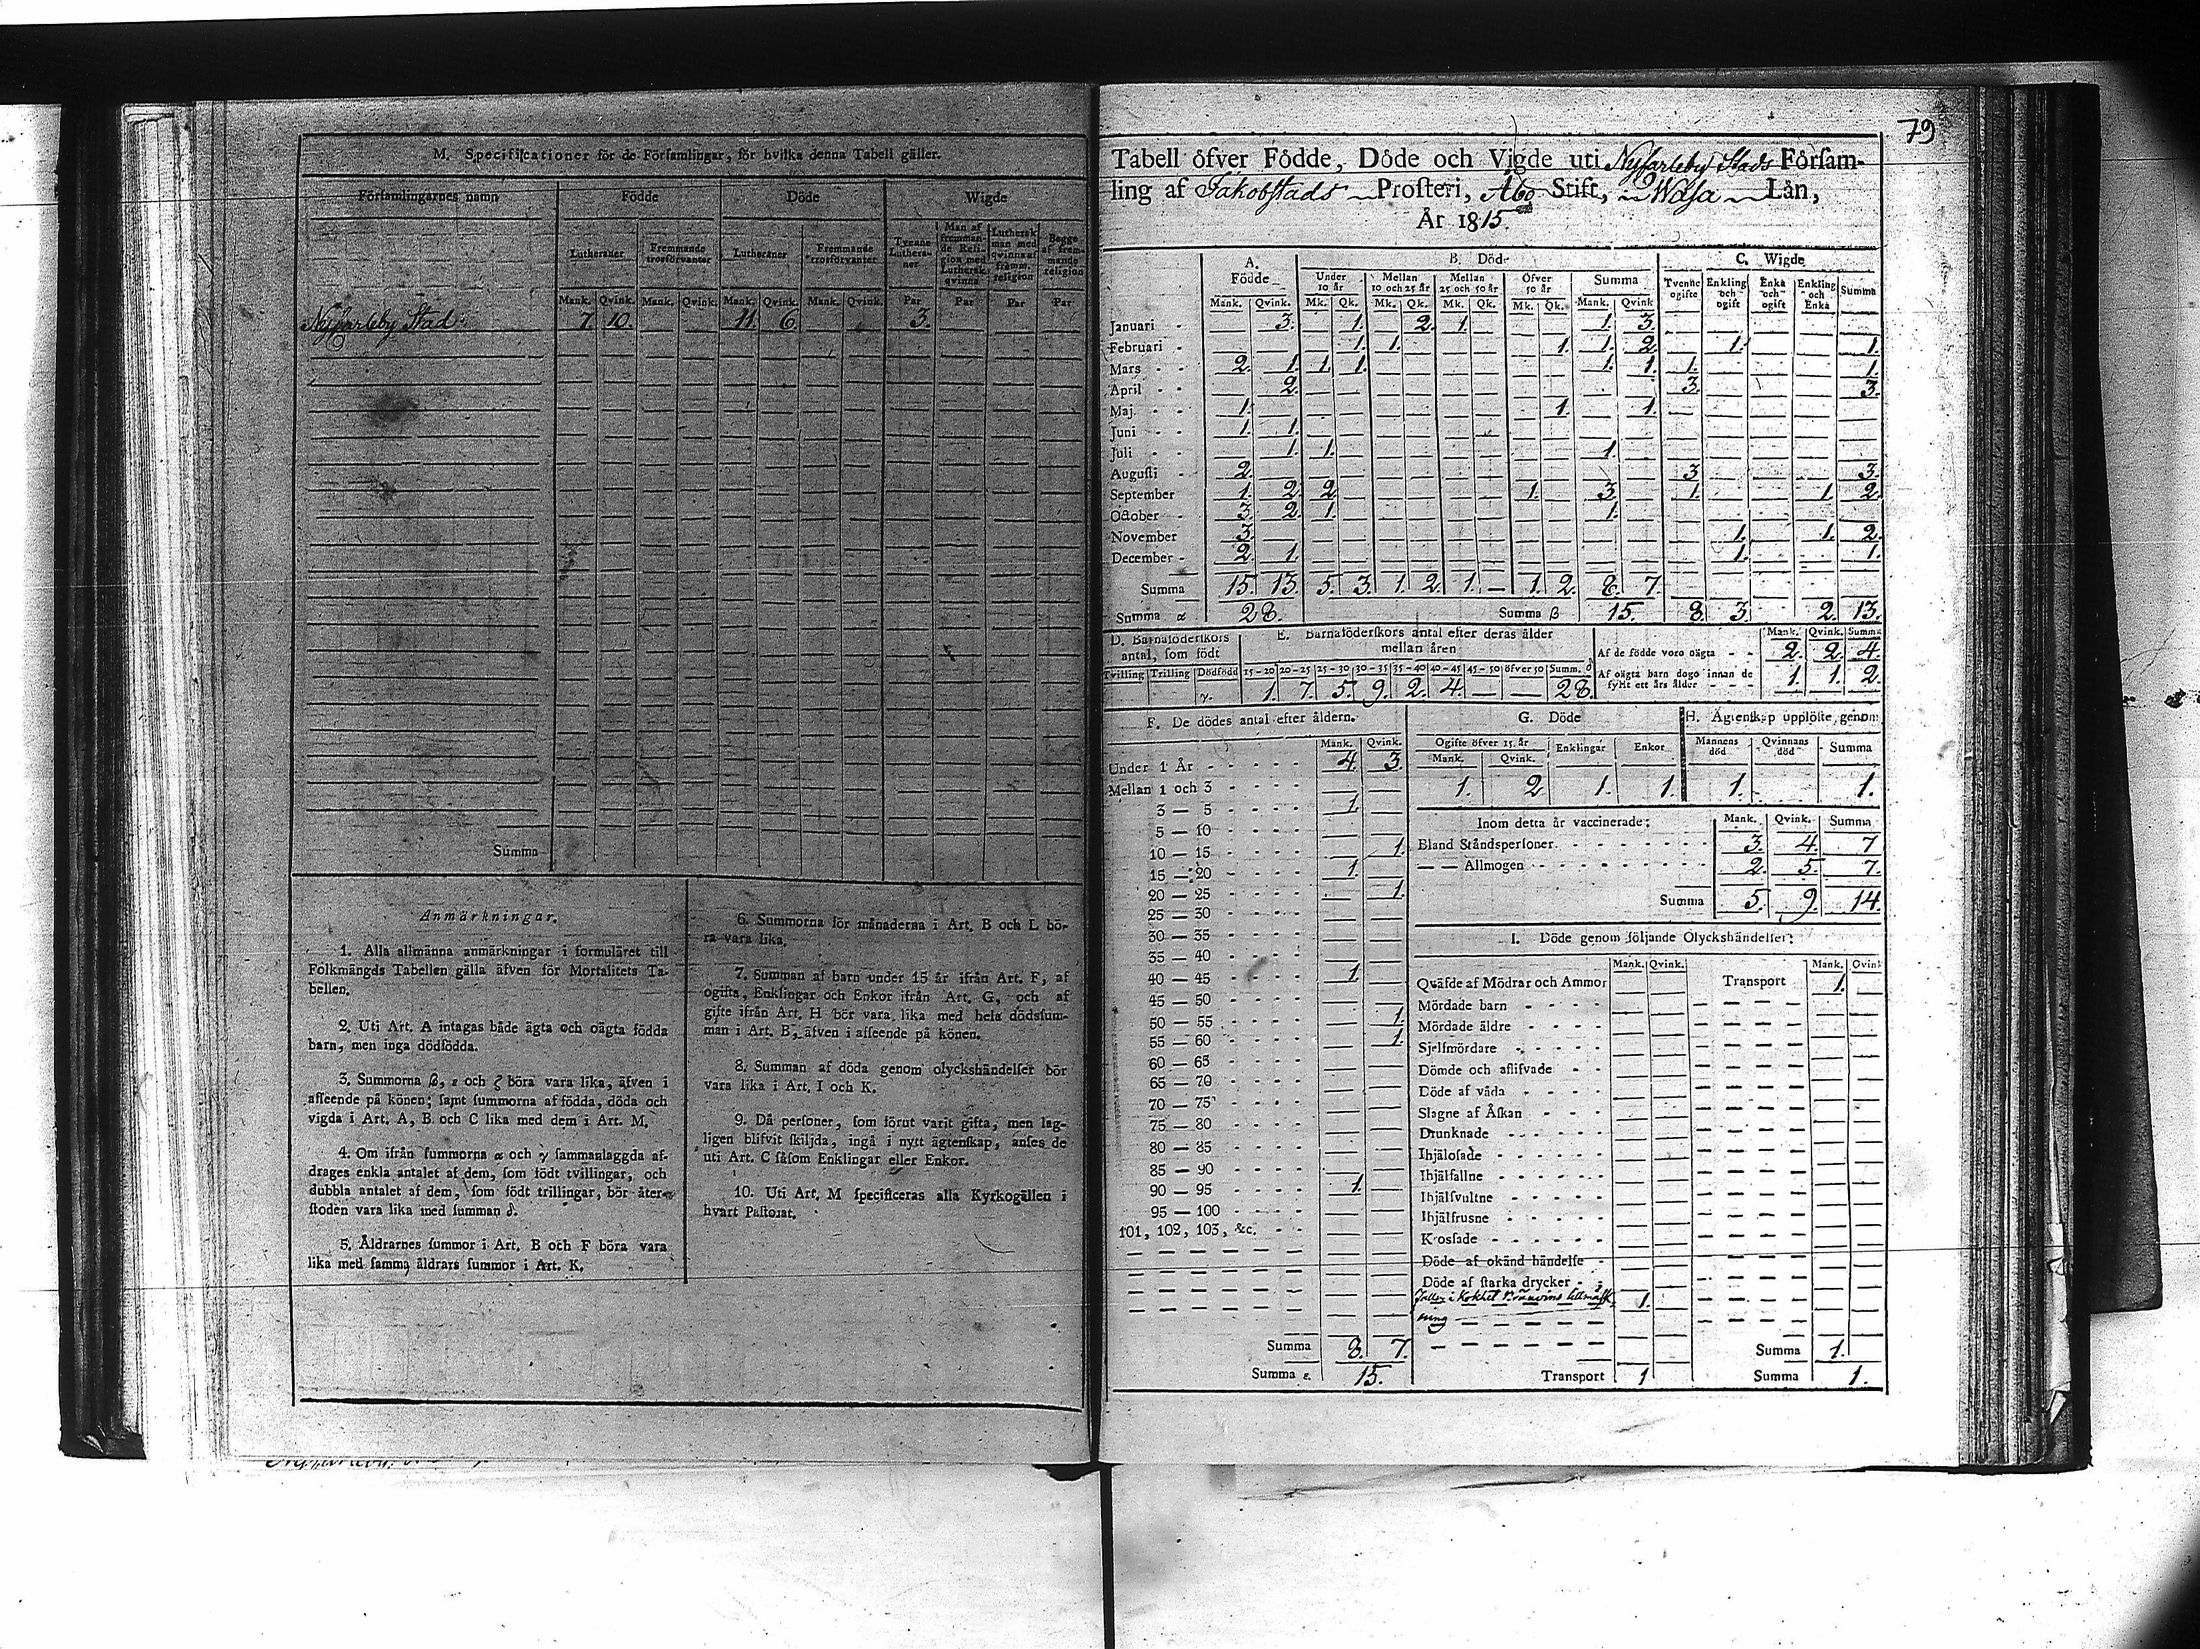 M. Specificationer för de Församlingar, för hvilka denna Tabell gäller.
Församlingarnes namn | Födde | Döde | Wigde
Lutheraner | Fremmande trosförvanter | Lutheraner | Fremmande trosförvanter | Tvenne Luthera-ner | Man af fremman-de Reli-gion med Luthersk qvinna | Luthersk man med qvinna af främm. religion | Begge af frem-mande religion
Mank. Qvink. Mank. Qvink. Mank. Qvink. Mank. Qvink. Par Par Par Par
Nyfarleby Stad 7. 10. 11. 6. 3.
Summa
Anmärkningar.
1. Alla allmänna anmärkningar i formuläret till
Folkmängds Tabellen gälla äfven för Mortalitets Ta-
bellen.
2. Uti Art. A intagas både ägta och oägta födda
barn, men inga dödfödda.
3. Summorna β, ε och ζ böra vara lika, äfven i
afseende på könen; samt summorna af födda, döda och
vigda i Art. A, B och C lika med dem i Art. M.
4. Om ifrån summorna α och γ sammanlaggda af-
drages enkla antalet af dem, som födt tvillingar, och
dubbla antalet af dem, som födt trillingar, bör åter-
stoden vara lika med summan δ.
5. Åldrarnes summor i Art. B och F böra vara
lika med samma åldrars summor i Art. K.
6. Summorna för månaderna i Art. B och L bö-
ra vara lika.
7. Summan af barn under 15 år ifrån Art. F, af
ogifta, Enklingar och Enkor ifrån Art. G, och af
gifte ifrån Art. H bör vara lika med hela dödssum-
man i Art. B, äfven i afseende på könen.
8. Summan af döda genom olyckshändelser bör
vara lika i Art. I och K.
9. Då personer, som förut varit gifta, men lag-
ligen blifvit skiljda, ingå i nytt ägtenskap, anses de
uti Art. C såsom Enklingar eller Enkor.
10. Uti Art. M specificeras alla Kyrkogällen i
hvart Pastorat.
79
Tabell öfver Födde, Döde och Vigde uti Nyfarleby Stads Försam-
ling af Jakobstads Prosteri, Åbo Stift, Wasa Län,
År 1815.
A. Födde | B. Döde | C. Wigde
Under 10 år | Mellan 10 och 25 år | Mellan 25 och 50 år | Öfver 50 år | Summa | Tvenne ogifte | Enkling och ogift | Enka och ogift | Enkling och Enka | Summa
Mank. Qvink. Mk. Qk. Mk. Qk. Mk. Qk. Mk. Qk. Mank. Qvink
Januari - 3. 1. 2. 1. 1. 3.
Februari - 1. 1. 1. 1. 2. 1. 1.
Mars - - 2. 1. 1. 1. 1. 1. 1. 1.
April - - 2. 3. 3.
Maj. - - 1. 1. 1.
Juni - - 1. 1.
Juli - - 1. 1. 1.
Augusti - 2. 3. 3.
September 1. 2. 2. 1. 3. 1. 1. 2.
October - 3. 2. 1. 1.
November 3. 1. 1. 2.
December - 2. 1. 1. 1.
Summa 15. 13. 5. 3. 1. 2. 1. — 1. 2. 8. 7.
Summa α 28. Summa β 15. 8. 3. 2. 13.
D. Barnaföderskors antal, som födt
Tvilling | Trilling | Dödfödd
γ.
E. Barnaföderskors antal efter deras ålder mellan åren
15-20 | 20-25 | 25-30 | 30-35 | 35-40 | 40-45 | 45-50 | öfver 50 | Summ. δ
1. 7. 5. 9. 2. 4. — — 28.
Mank. Qvink. Summa
Af de födde voro oägta - - 2. 2. 4.
Af oägta barn dogo innan de fyllt ett års ålder - - - 1. 1. 2.
F. De dödes antal efter åldern.
Mank. Qvink.
Under 1 År - - - - - 4. 3.
Mellan 1 och 3 - - - -
3 — 5 - - - - 1.
5 — 10 - - - -
10 — 15 - - - - 1.
15 — 20 - - - - 1.
20 — 25 - - - - 1.
25 — 30 - - - -
30 — 35 - - - -
35 — 40 - - - -
40 — 45 - - - - 1.
45 — 50 - - - -
50 — 55 - - - - 1.
55 — 60 - - - - 1.
60 — 65 - - - -
65 — 70 - - - -
70 — 75 - - - -
75 — 80 - - - -
80 — 85 - - - -
85 — 90 - - - -
90 — 95 - - - - 1.
95 — 100 - - - -
101, 102, 103, &c. - -
Summa 8. 7.
Summa ε. 15.
G. Döde
Ogifte öfver 15. år | Enklingar | Enkor
Mank. Qvink.
1. 2 1. 1.
H. Ägtenskap upplöste, genom
Mannens död | Qvinnans död | Summa
1. 1.
Inom detta år vaccinerade: Mank. Qvink. Summa
Bland Ståndspersoner. - - - 3. 4. 7
— — Allmogen - - - 2. 5. 7.
Summa 5. 9. 14.
I. Döde genom följande Olyckshändelser:
Mank. Qvink. Mank. Qvink
Qväfde af Mödrar och Ammor Transport 1.
Mördade barn - - - -
Mördade äldre - - - -
Sjelfmördare - - - -
Dömde och aflifvade - -
Döde af våda - - - -
Slagne af Åskan - - - -
Drunknade - - - - -
Ihjälosade - - - - -
Ihjälfallne - - - - -
Ihjälsvultne - - - - -
Ihjälfrusne - - - - -
Krossade - - - - - -
Döde af okänd händelse -
Döde af starka drycker - -
i Kokhet Bränvins 1.
ning
Summa 1.
Transport 1 Summa 1.